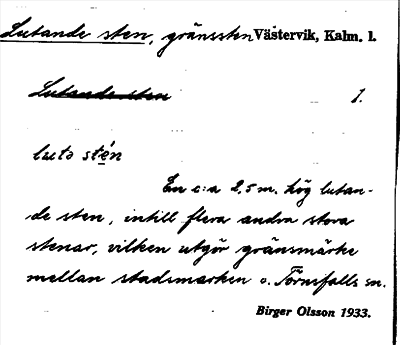 Lutande sten, gränssten Västervik, Kalm. l.
Lutande sten 1.
luto stén
En c:a 2,5 m. hög lutan-
de sten, intill flera andra stora
stenar, vilken utgör gränsmärke
mellan stadsmarken o. Törnsfalls sn.
Birger Olsson 1933.